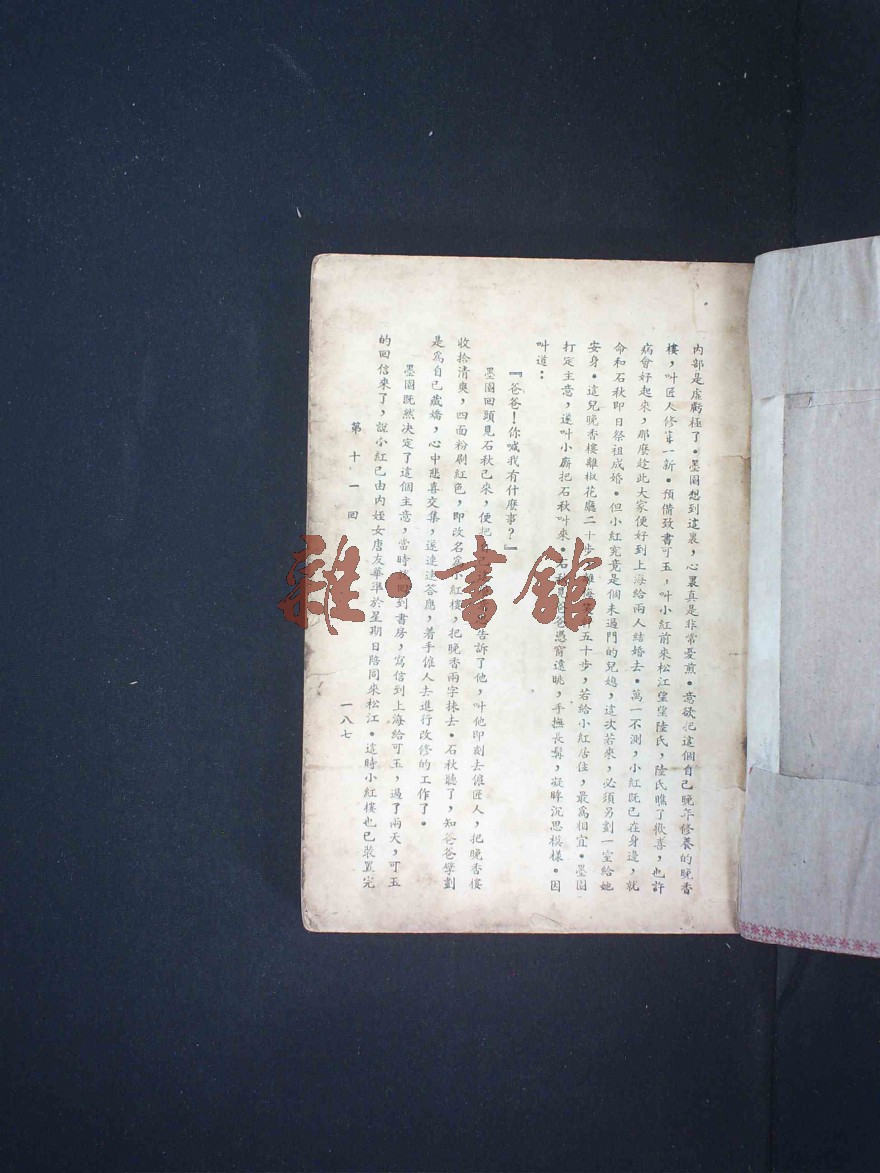 內部是虛虧極了。墨園想到這裏，心裏真是非常憂煎。意欲把這個自己晚年修養的晚香
樓，叫匠人修葺一新。預備致書可玉，叫小紅前來松江望望陸氏，陸氏瞧了歡喜，也許
病會好起來，那麼趁此大家便好到上海給兩人結婚去。萬一不測，小紅既已在身邊，就
命和石秋卽日祭祖成婚。但小紅究竟是個未過門的兒媳，這次若來，必須另劃一室給她
安身。這兒晚香樓離椒花廳二十步，離 五十步，若給小紅居住，最爲相宜。墨園
打定主意，遂叫小廝把石秋叫來。石秋見爸爸憑窗遠眺，手撫長髯，凝眸沉思模樣。因
叫道：
『爸爸！你喊我有什麼事？』
墨園回頭見石秋已來，便把自己 告訴了他，叫他卽刻去僱匠人，把晚香樓
收拾清爽，四面粉刷紅色，卽改名爲小紅樓，把晚香兩字抹去。石秋聽了，知爸爸擘劃
是爲自己藏嬌，心中悲喜交集，遂連連答應，着手僱人去進行改修的工作了。
墨園旣然決定了這個主意，當時 回到書房，寫信到上海給可玉，過了兩天，可玉
的回信來了，說小紅已由內姪女唐友華準於星期日陪同來松江。這時小紅樓也已裝置完
第十一回
一八七
雜·書館